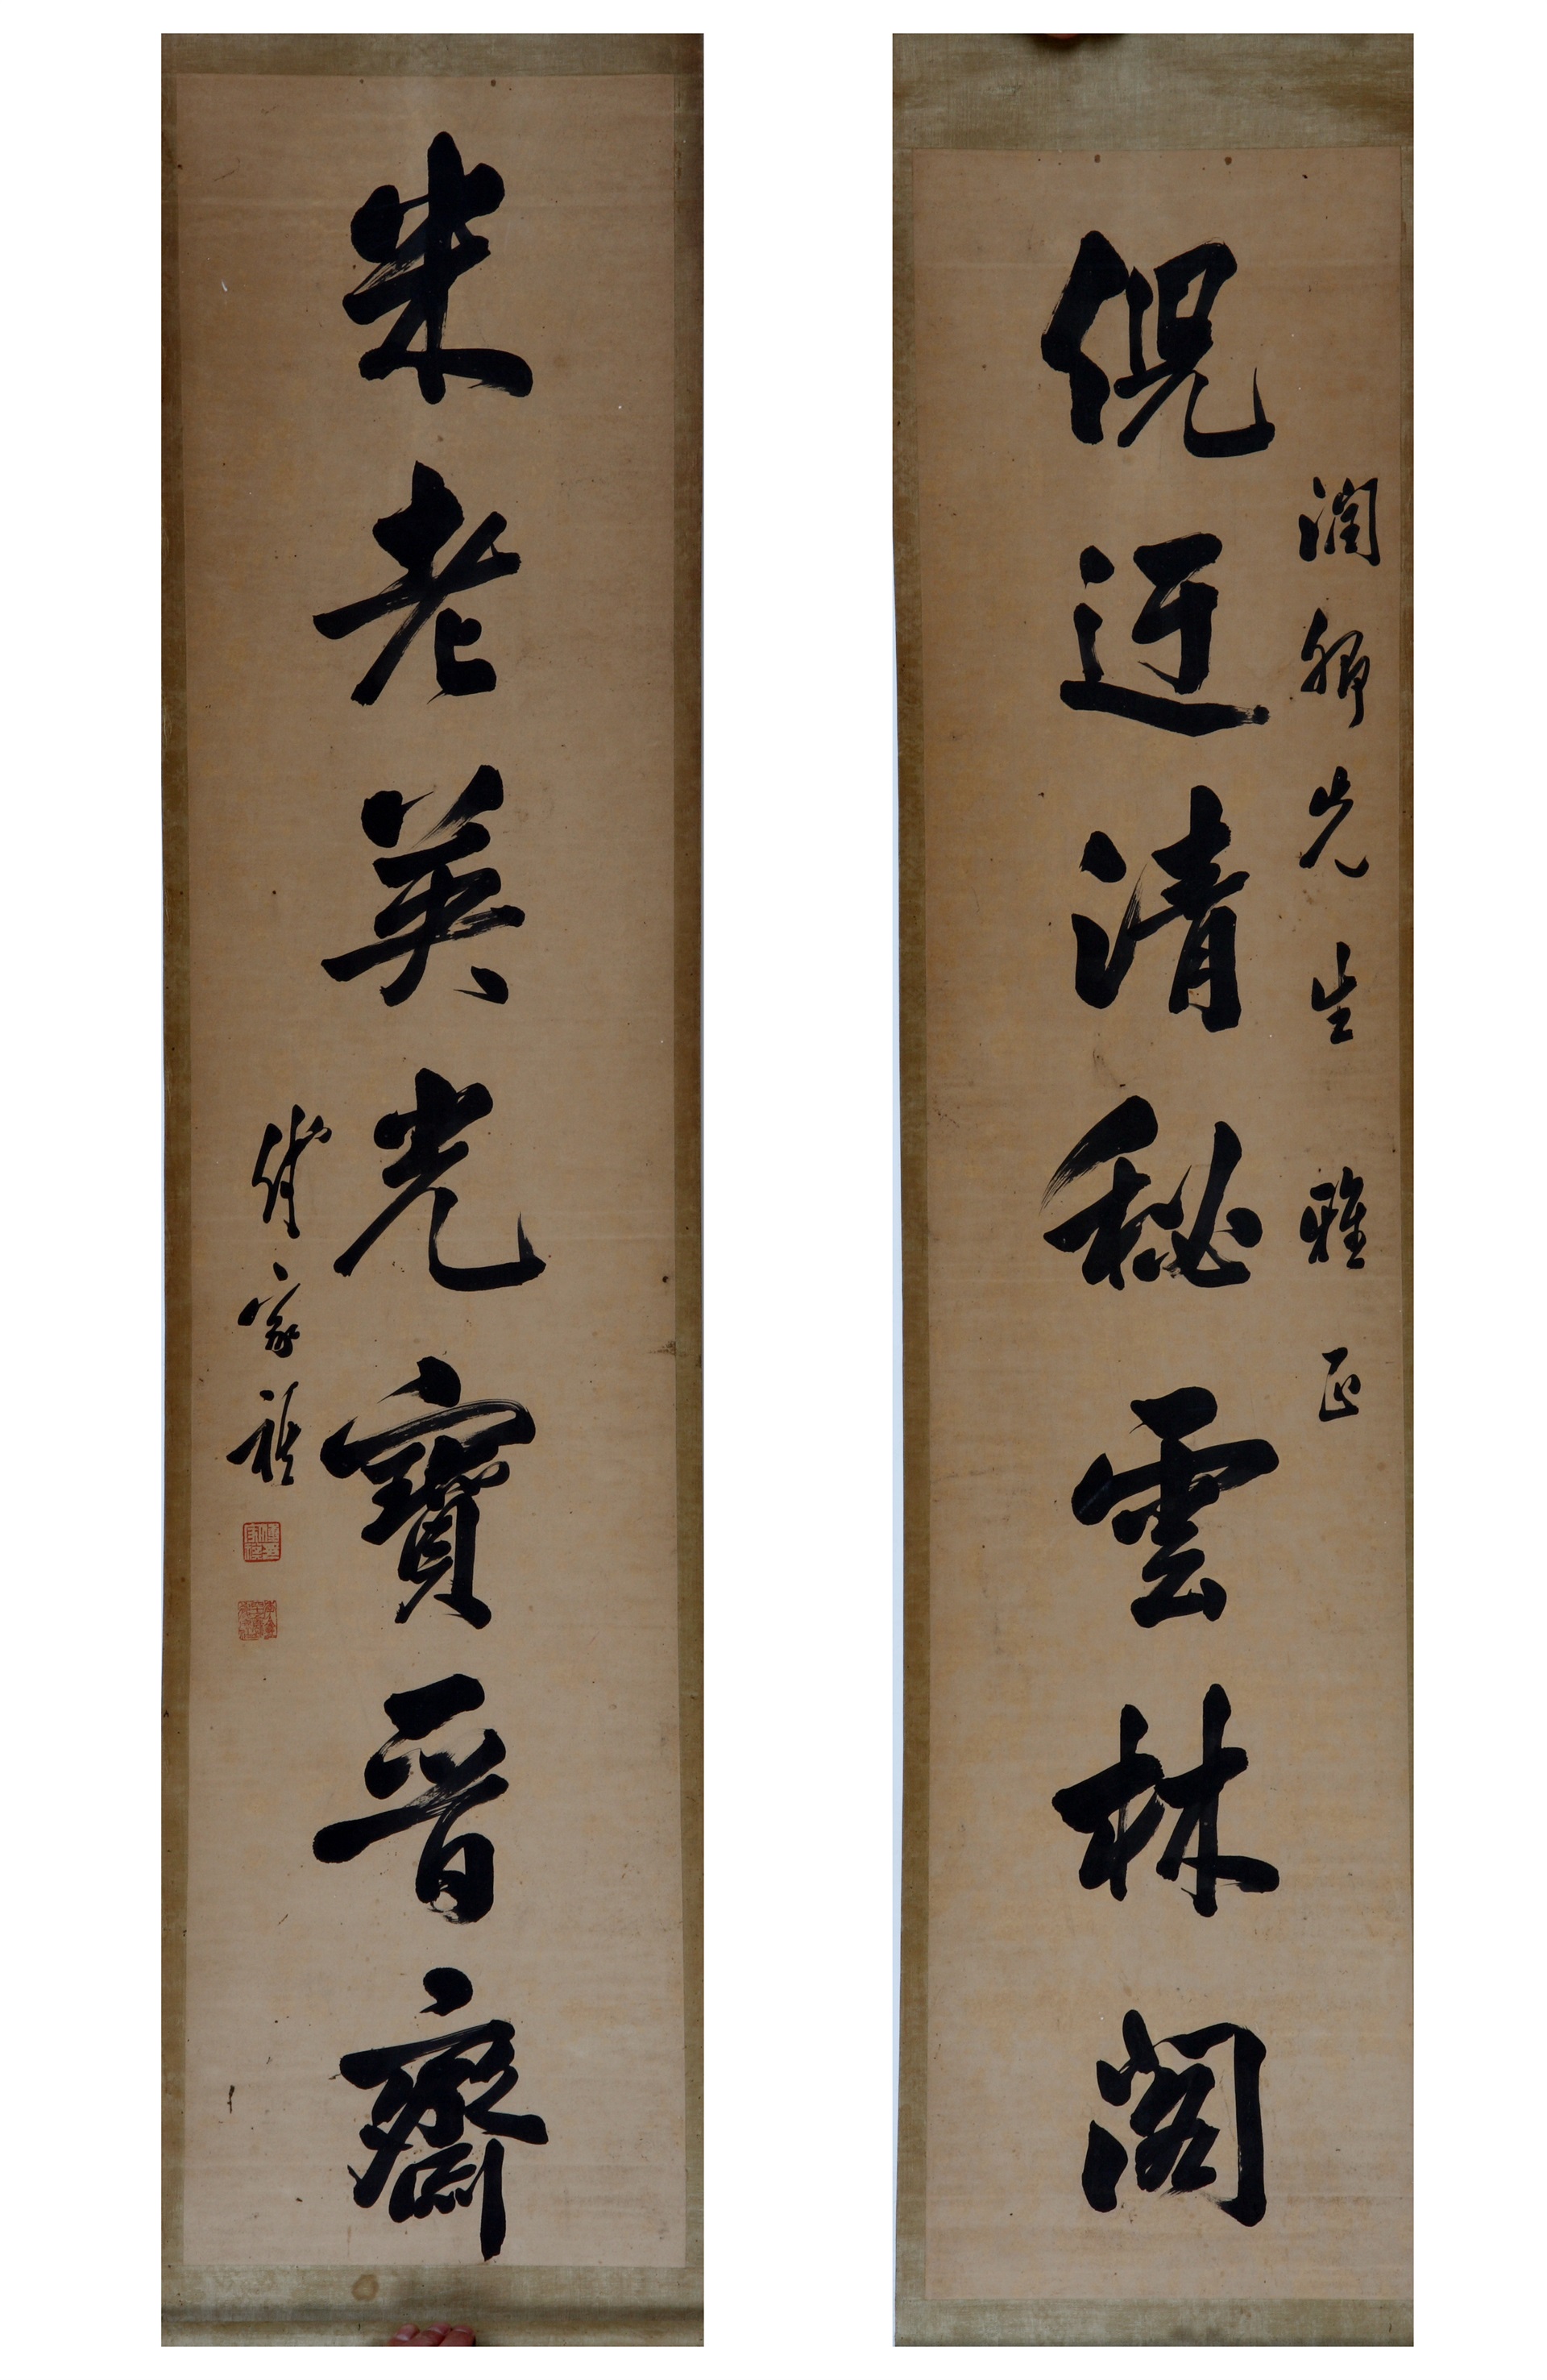 潤卿先生雅正
倪迂清秘雲林閣
米老英光寶晉齋
家禎